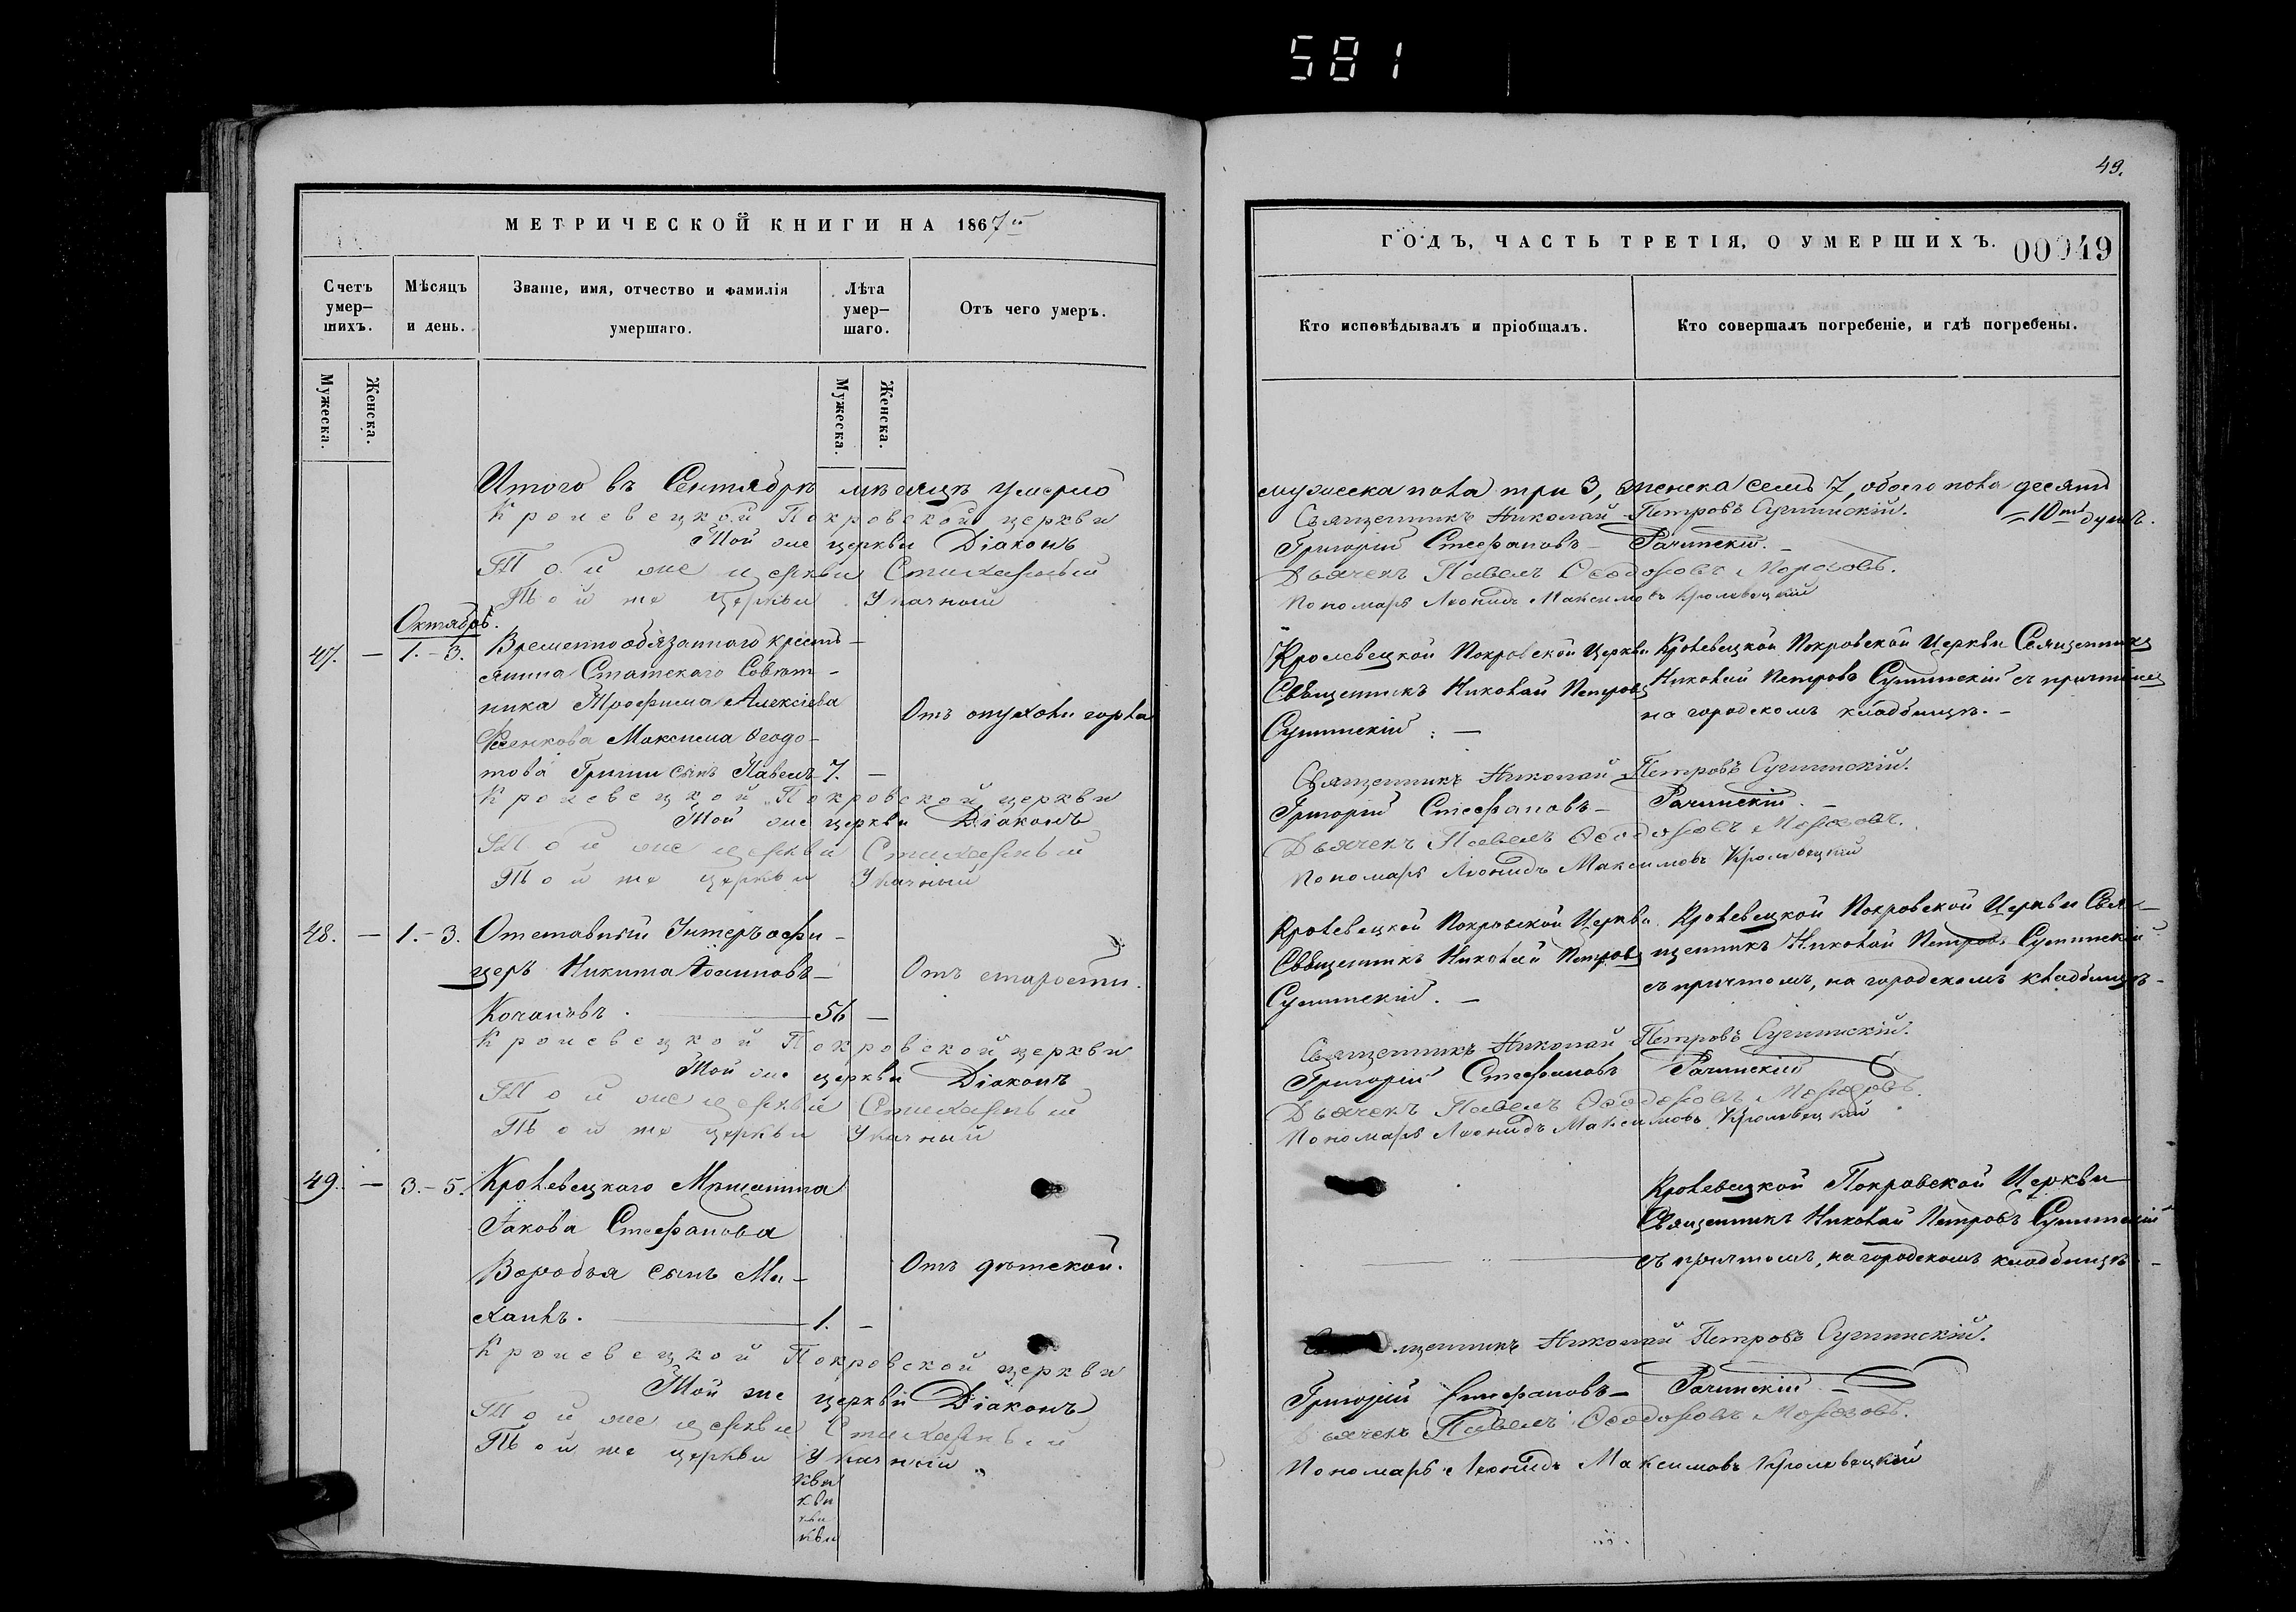 581
49.
МЕТРИЧЕСКОЙ КНИГИ НА 1867й
ГОДЪ, ЧАСТЬ ТРЕТІЯ, О УМЕРШИХЪ.
00049
Счетъ умер-шихъ.
Мѣсяцъ и день.
Званіе, имя, отчество и фамилія умершаго.
Лѣта умер-шаго.
Отъ чего умеръ.
Кто исповѣдывалъ и пріобщалъ.
Кто совершалъ погребеніе, и гдѣ погребены.
Мужеска.
Женска.
Мужеска.
Женска.
Итого въ Сентябрѣ мѣсяцѣ умерло мужеска пола три 3, женска семь 7, обоего пола десять
= 10ть душъ.
Кролевецкой Покровской церкви Священникъ Николай Петровъ Сулимскій.
Той же церкви Діаконъ Григорій Стефановъ Рачинскій.
Той же церкви Стихарный Дьячекъ Павелъ Ѳеодоровъ Морозовъ.
Той же церкви Указный Пономарь Леонидъ Максимовъ Кролевецкій
Октябрь.
47. — 1.-3.
Временнообязаннаго кресть-
янина Статскаго Совѣт-
ника Трофима Алексіева
Максима Ѳеодо-
това Гриши сынъ Павелъ 7. —
Отъ опухоли горла
Кролевецкой Покровской Церкви
Священникъ Николай Петровъ
Сулимскій. —
Кролевецкой Покровской Церкви Священникъ
Николай Петровъ Сулимскій съ причтомъ
на городскомъ кладбищѣ. —
Кролевецкой Покровской церкви Священникъ Николай Петровъ Сулимскій.
Той же церкви Діаконъ Григорій Стефановъ Рачинскій. —
Той же церкви Стихарный Дьячекъ Павелъ Ѳеодоровъ Морозовъ.
Той же церкви Указный Пономарь Леонидъ Максимовъ Кролевецкій
48. — 1.-3.
Отставный Унтеръ офи-
церъ Никита Іосиповъ
Кочановъ. 56 —
Отъ старости.
Кролевецкой Покровской Церкви
Священникъ Николай Петровъ
Сулимскій. —
Кролевецкой Покровской Церкви Свя-
щенникъ Николай Петровъ Сулимскій
съ причтомъ, на городскомъ кладбищѣ. —
Кролевецкой Покровской церкви Священникъ Николай Петровъ Сулимскій.
Той же церкви Діаконъ Григорій Стефановъ Рачинскій
Той же церкви Стихарный Дьячекъ Павелъ Ѳеодоровъ Морозовъ.
Той же церкви Указный Пономарь Леонидъ Максимовъ Кролевецкій
49. — 3.-5.
Кролевецкаго Мѣщанина
Іакова Стефанова
Воробья сынъ Ми-
хаилъ. 1. —
Отъ дѣтской.
Кролевецкой Покровской Церкви
Священникъ Николай Петровъ Сулимскій
съ причтомъ, на городскомъ кладбищѣ. —
Кролевецкой Покровской церкви Священникъ Николай Петровъ Сулимскій.
Той же церкви Діаконъ Григорій Стефановъ Рачинскій
Той же церкви Стихарный Дьячекъ Павелъ Ѳеодоровъ Морозовъ.
Той же церкви Указный Пономарь Леонидъ Максимовъ Кролевецкій
кви
кви
кви
кви